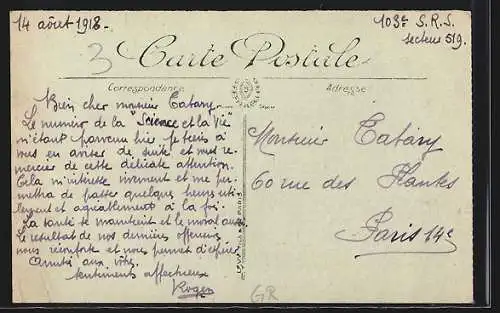 14 août 1918.
103e S.R.S.
secteur 519.
3
Carte Postale
Correspondance
Adresse
Bien cher monsieur Tatary.
Le numéro de la "Science et la Vie"
m'étant parvenu hier je tiens à
vous en aviser de suite et vous re-
mercier de cette délicate attention.
Cela m'intéresse vivement et me per-
mettra de passer quelques heures utile-
ment et agréablement à la fois.
La santé se maintient et le moral aussi
le résultat de nos dernières offensives
nous réconforte et nous permet d'espérer
Amitiés aux vôtres.
Sentiments affectueux
Roger
Monsieur Tatary
60 rue des Plantes
Paris 14e
GR